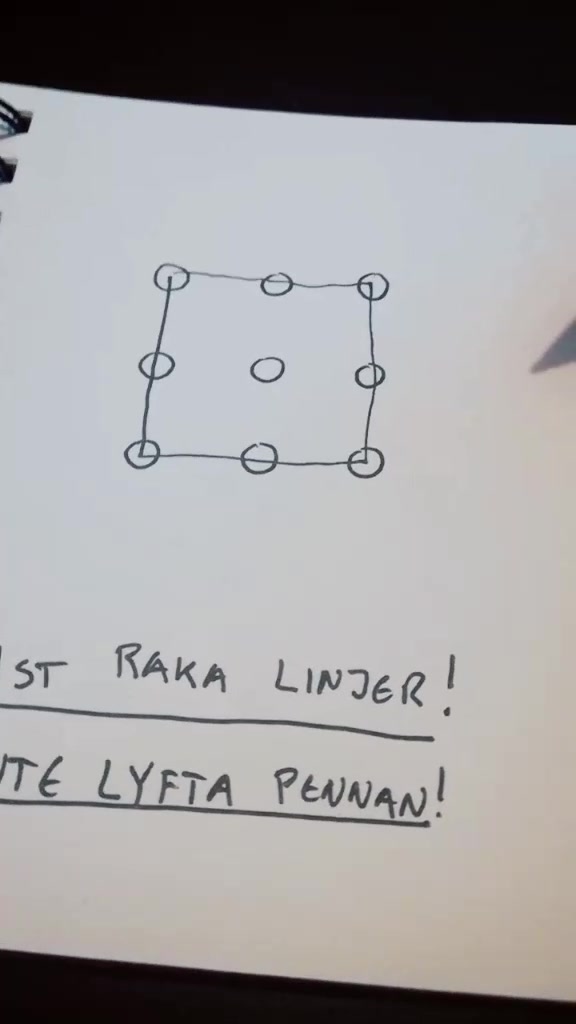 ST RAKA LINJER!
TE LYFTA PENNAN!